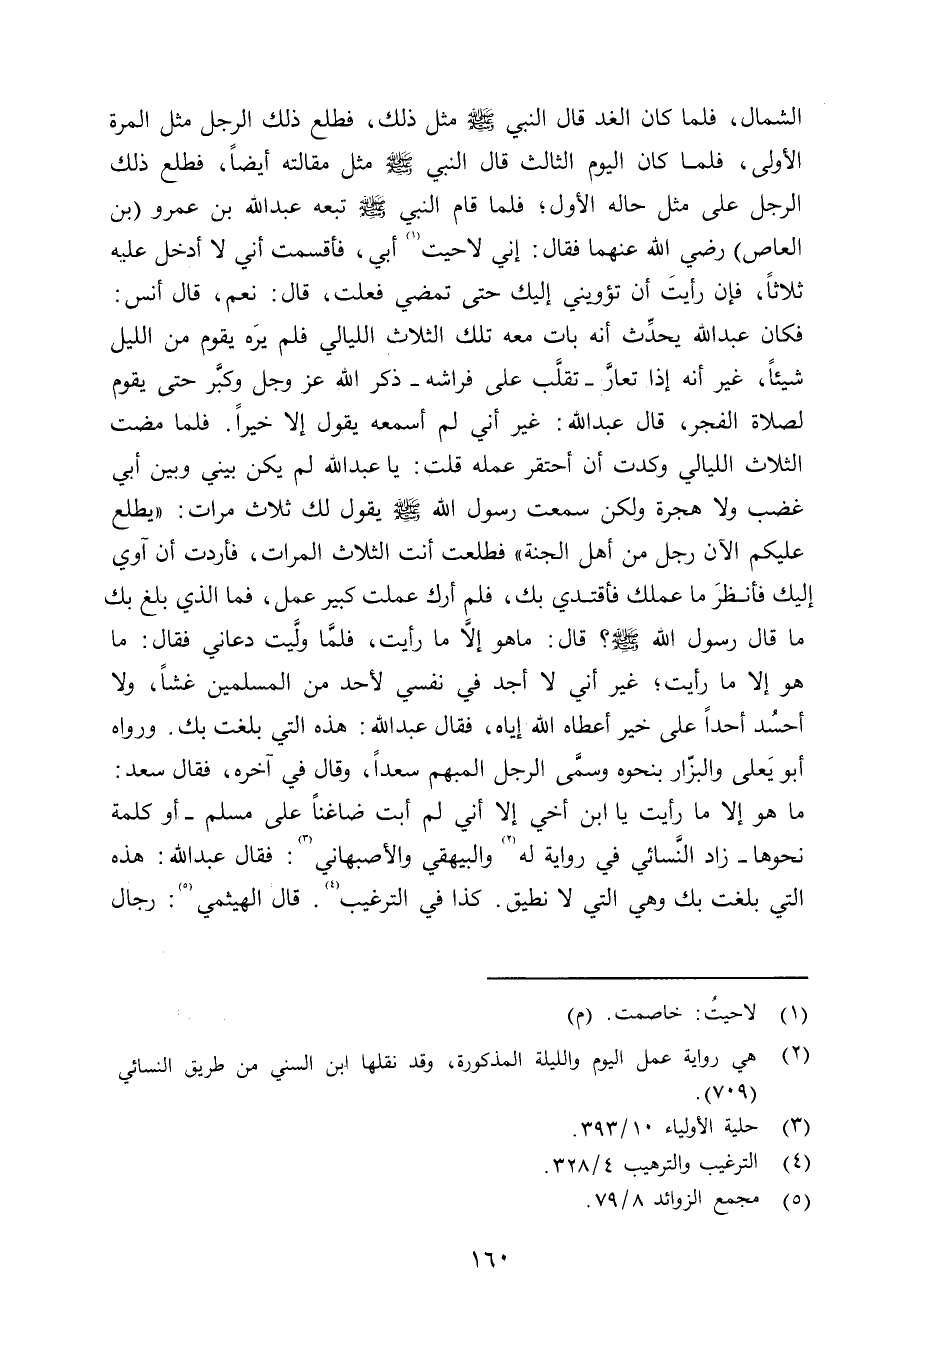 الشمال، فلما كان الغد قال النبي ﷺ مثل ذلك، فطلع ذلك الرجل مثل المرة
الأولى، فلمـا كان اليوم الثالث قال النبي ﷺ مثل مقالته أيضاً، فطلع ذلك
الرجل على مثل حاله الأول؛ فلما قام النبي ﷺ تبعه عبدالله بن عمرو (بن
العاص) رضي الله عنهما فقال: إني لاحيت(١) أبي، فأقسمت أني لا أدخل عليه
ثلاثاً، فإن رأيتَ أن تؤويني إليك حتى تمضي فعلت، قال: نعم، قال أنس:
فكان عبدالله يحدِّث أنه بات معه تلك الثلاث الليالي فلم يرَه يقوم من الليل
شيئاً، غير أنه إذا تعارَّ ـ تقلَّب على فراشه ـ ذكر الله عز وجل وكبَّر حتى يقوم
لصلاة الفجر، قال عبدالله: غير أني لم أسمعه يقول إلا خيراً. فلما مضت
الثلاث الليالي وكدت أن أحتقر عمله قلت: يا عبدالله لم يكن بيني وبين أبي
غضب ولا هجرة ولكن سمعت رسول الله ﷺ يقول لك ثلاث مرات: «يطلع
عليكم الآن رجل من أهل الجنة» فطلعت أنت الثلاث المرات، فأردت أن آوي
إليك فأنـظرَ ما عملك فأقتـدي بك، فلم أرك عملت كبير عمل، فما الذي بلغ بك
ما قال رسول الله ﷺ؟ قال: ماهو إلاَّ ما رأيت، فلمَّا ولَّيت دعاني فقال: ما
هو إلا ما رأيت؛ غير أني لا أجد في نفسي لأحد من المسلمين غشاً، ولا
أحسُد أحداً على خير أعطاه الله إياه، فقال عبدالله: هذه التي بلغت بك. ورواه
أبو يَعلى والبزّار بنحوه وسمَّى الرجل المبهم سعداً، وقال في آخره، فقال سعد:
ما هو إلا ما رأيت يا ابن أخي إلا أني لم أبت ضاغناً على مسلم ـ أو كلمة
نحوها ـ زاد النَّسائي في رواية له(٢) والبيهقي والأصبهاني(٣): فقال عبدالله: هذه
التي بلغت بك وهي التي لا نطيق. كذا في الترغيب(٤). قال الهيثمي(٥): رجال
(١) لاحيتُ: خاصمت. (م)
(٢) هي رواية عمل اليوم والليلة المذكورة، وقد نقلها ابن السني من طريق النسائي
(٧٠٩).
(٣) حلية الأولياء ١٠/٣٩٣.
(٤) الترغيب والترهيب ٤/٣٢٨.
(٥) مجمع الزوائد ٨/٧٩.
١٦٠